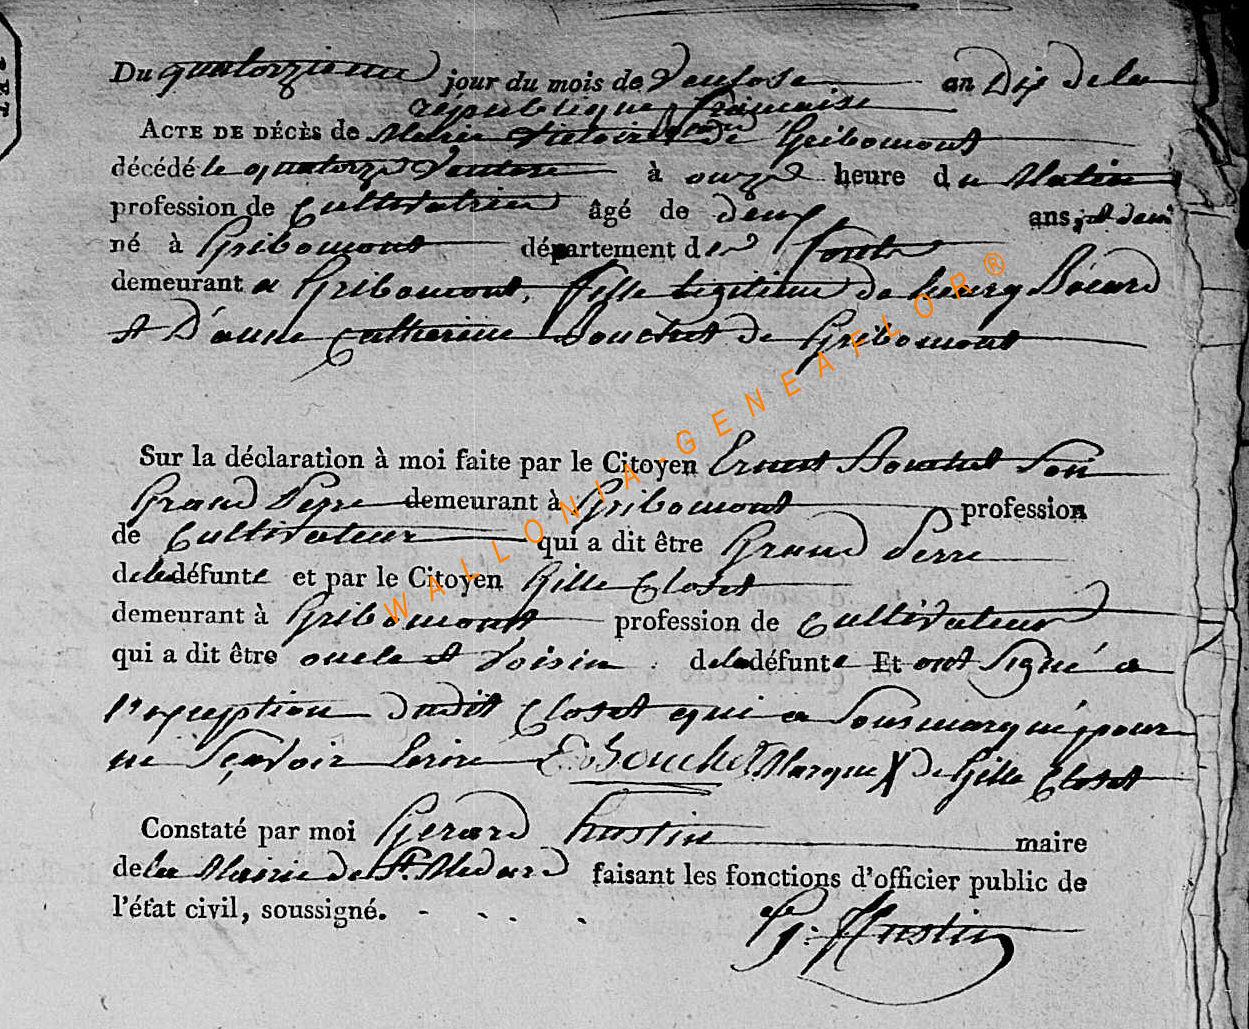 Du quatorzieme jour du mois de Ventose an Dix de la
république française
ACTE DE DÉCÈS de Marie Victoire de Gribomont
décédé le quatorze Ventose à onze heure du Matin
profession de Cultivatrice âgé de deux ans et demi
né à Gribomont département des forets
demeurant a Gribomont, fille legitime de henry
et D'anne Catherine Bouchet de Gribomont
Sur la déclaration à moi faite par le Citoyen Ernest Bouchet Son
Grand Perre demeurant à Gribomont profession
de Cultivateur qui a dit être Grand Perre
de la défunte et par le Citoyen Gille Closet
demeurant à Gribomont profession de Cultivateur
qui a dit être oncle et voisin de la défunte Et ont Signé a
l'exception dudit Closet qui a Sousmarqué pour
ne Sçavoir Ecrire E: Bouchet Marque X De Gille Closet
Constaté par moi Gerard hustin maire
de la Mairie de St. Medard faisant les fonctions d'officier public de
l'état civil, soussigné.
G: Hustin
WALLONIA-GENEAFLOR®